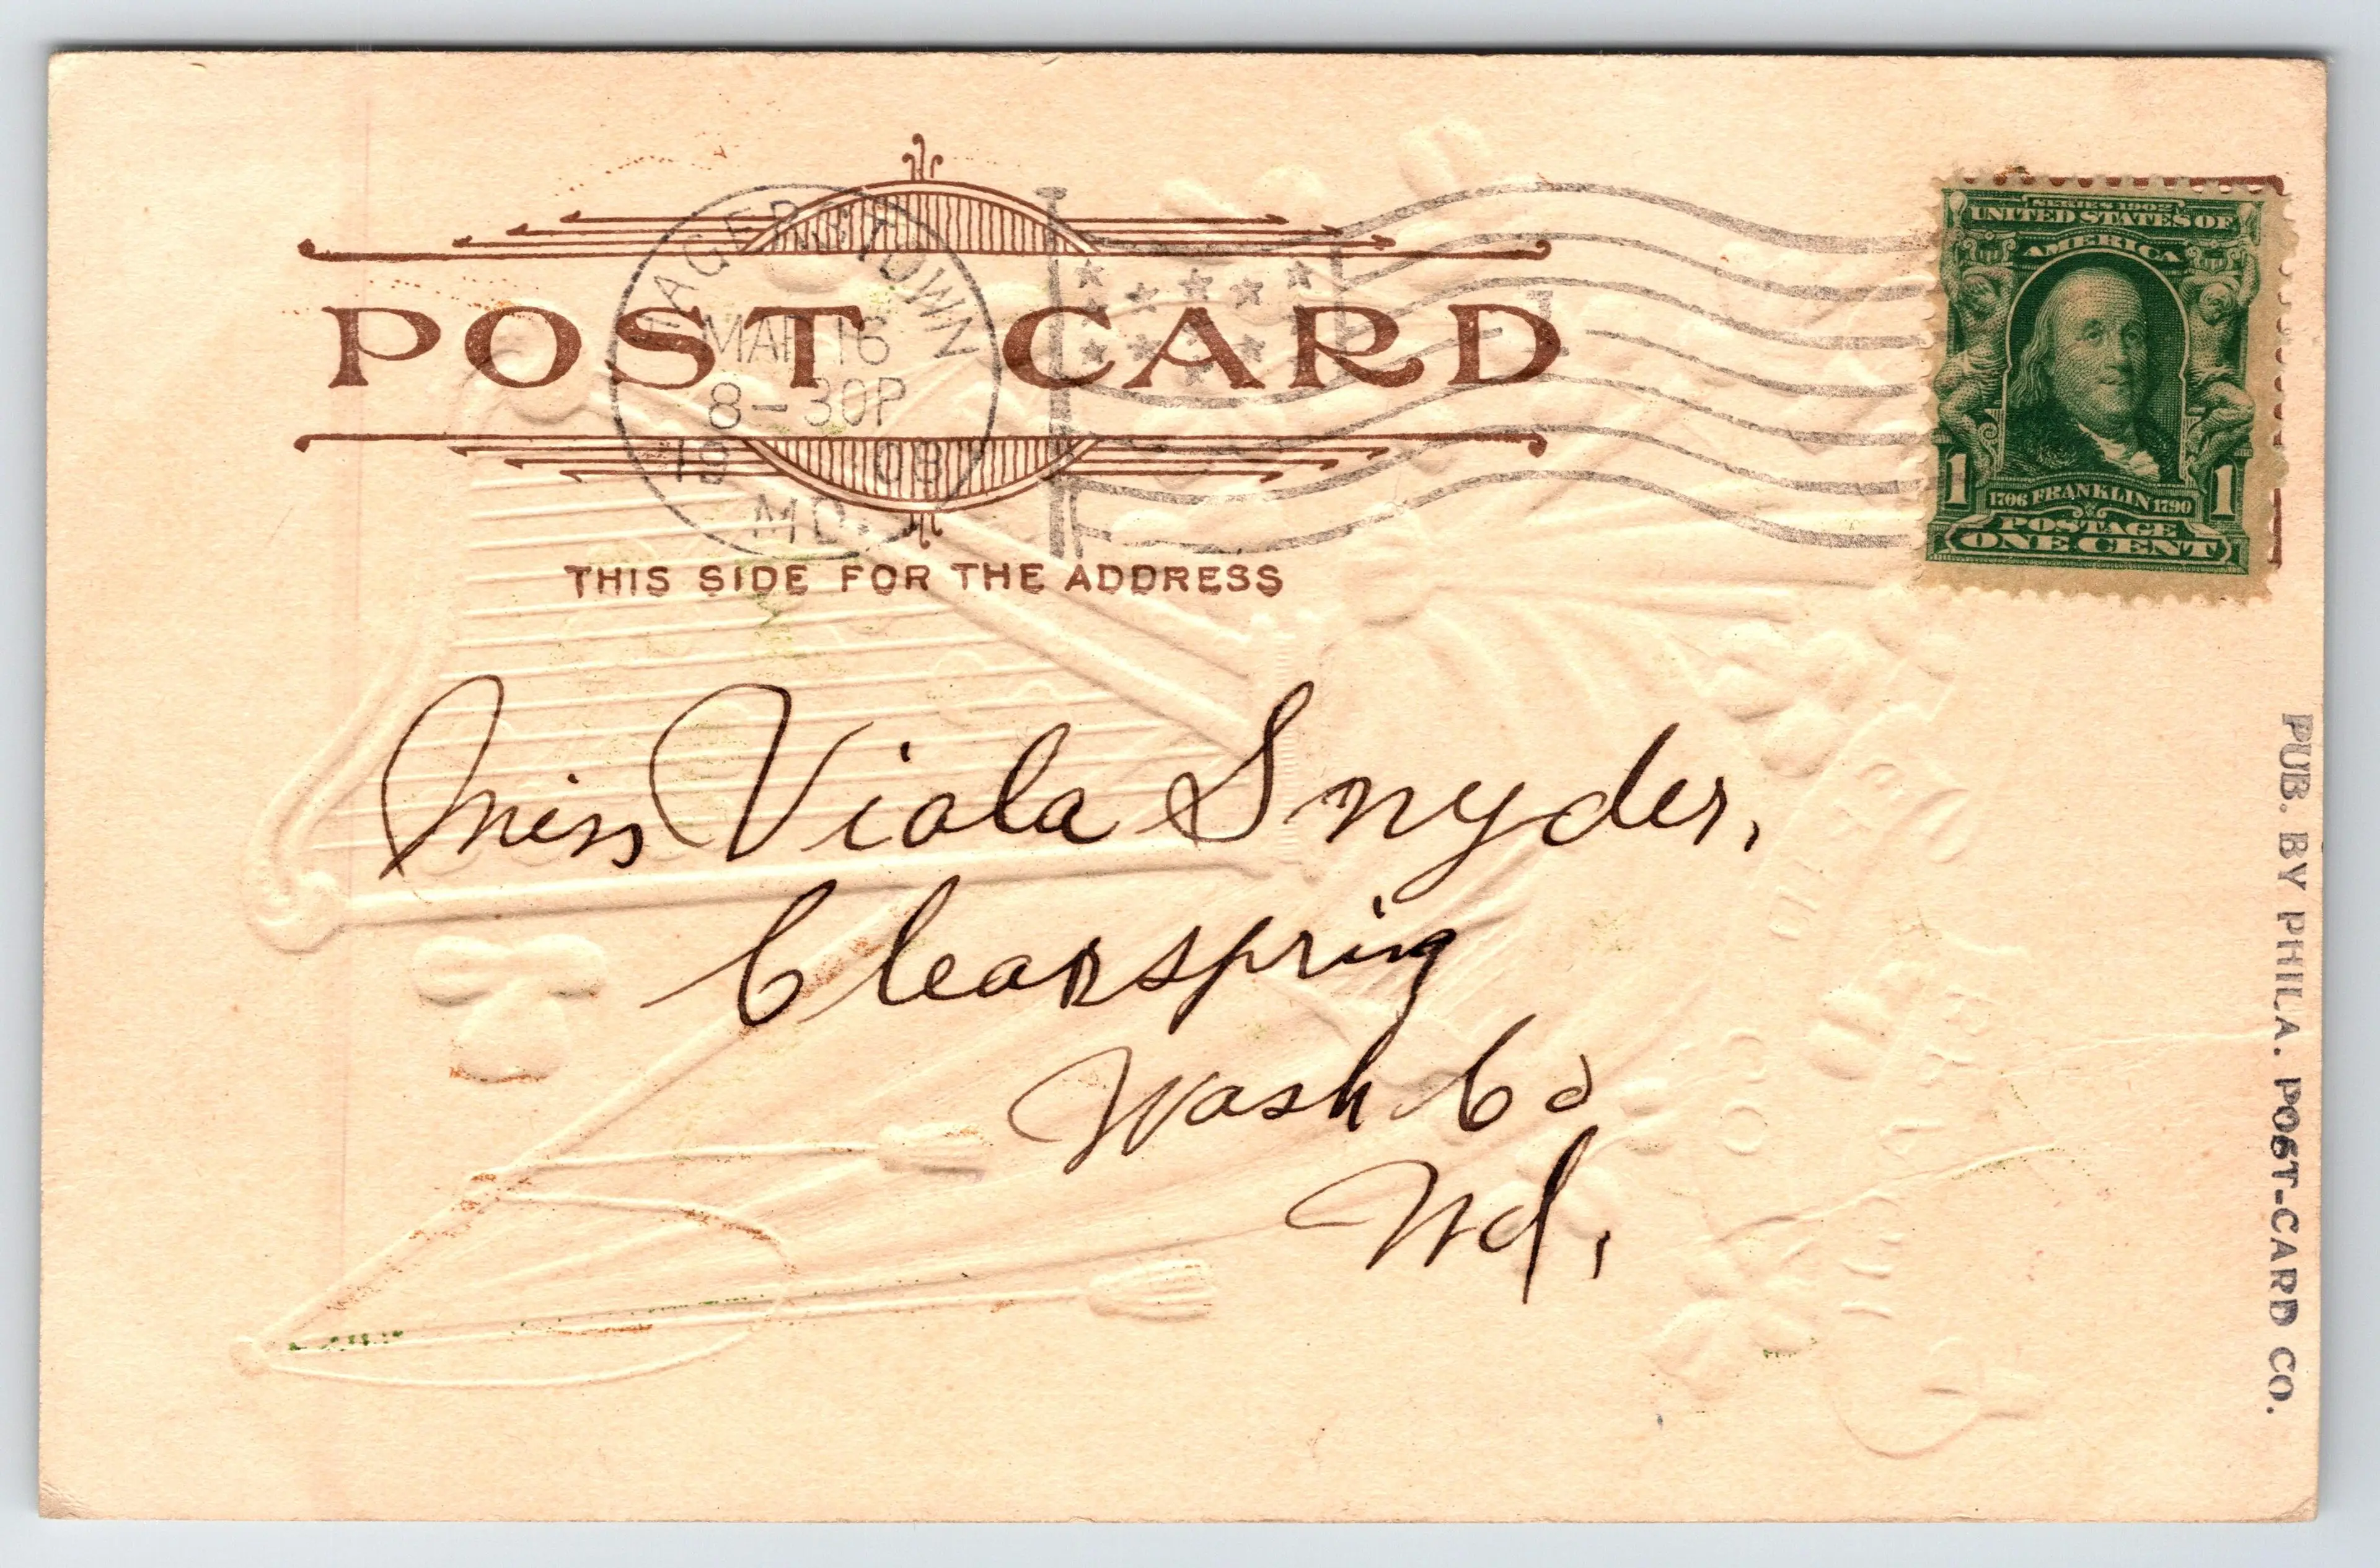 HAGERSTOWN
MAR 16
8-30P
19 09
MD.
POST CARD
THIS SIDE FOR THE ADDRESS
SERIES 1902
UNITED STATES OF
AMERICA
1 1
1706 FRANKLIN 1790
POSTAGE
ONE CENT
Miss Viola Snyder,
Clearspring
Wash Co
Md.
PUB. BY PHILA. POST-CARD CO.